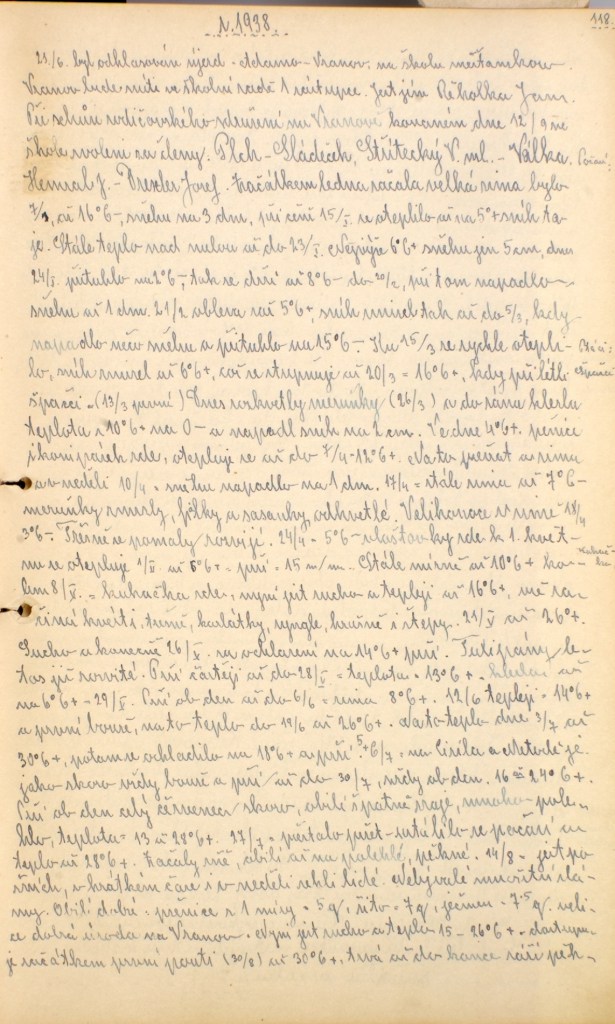 r. 1938.
118.
23/6. byl odhlasován újezd - Adamov - Vranov. na školu měšťanskou.
Vranov bude míti ve školní radě 1 zástupce. Jest jím Řehořka Jan.
Při schůzi rodičovského sdružení na Vranově konaném dne 12/9 ve
škole zvoleni za členy. Plch - Sládeček, Střítecký V. ml. - Válka. Počasí:
Hemzal J. - Drexler Josef. Začátkem ledna začala velká zima bylo
7/1, až 16°6-, sněhu na 3 dm, při čemž 15/I. se oteplilo až na 5°+ sníh ta-
je. Stále teplo nad nulou až do 23/I. Nejvýše 6°6+ sněhu jen 5 cm, dne
24/I. přituhlo na 2°6-, tak se drží až 8°6- do 20/2, při tom napadlo
sněhu až 1 dm. 21/2 obleva zas 5°6+, sníh mizel tak až do 5/3, kdy
napadlo něco sněhu a přituhlo na 15°6-. Ku 15/3 se rychle oteplilo
lo, sníh mizel až 6°6+, což se stupňuje až 20/3 = 16°6+, kdy přilétli
špačci - (13/3 první) Dnes rozkvetly meruňky (26/3) a do rána klesla
teplota z 10°6+ na 0 - a napadl sníh na 2 cm. Ve dne 4°6+. pěnice
i konipásek zde, otepluje se až do 7/4 - 12°6+. Na to přešlat a zima
a v neděli 10/4 = sněhu napadlo na 1 dm. 17/4 = stále zima až 7°6-
meruňky zmrzly, fijalky a sasanky odkvetlé. Velikonoce v zimě 18/4
3°6-. Třešně se pomalu rozvijí. 24/4 - 5°6- vlaštovky zde k 1. květ-
nu se otepluje 1/V. až 6°6+ - prší = 15 m/m. - Stále mírně až 10°6+ ko-
lem 8/V. = kukačka zde, nyní jest sucho a tepleji až 16°6+, vše za-
číná kvésti, třešně, karlátky, ryngle, hrušně i štepy. 21/V až 26°+.
Sucho a konečně 26/V. se ochlazení na 14°6+ prší. Tulipány le-
tos již rozvité. Prší častěji až do 28/V = teplota - 13°6+. klesla až
na 6°6+ - 29/V. Prší ob den až do 6/6 = zima 8°6+. 12/6 tepleji - 14°6+
a první bouře, na to teplo do 19/6 až 26°6+. Na to teplo dne 3/7 až
30°6+, potom se ochladilo na 18°6+ a prší. 5+6/7 = na Cirila a Metoděje.
jako skoro vždy bouře a prší až do 30/7, vždy ob den. 16 až 24°6+.
Prší ob den celý červenec skoro, obilí špatně zraje, mnoho pole-
hlo, teplota = 13 až 28°6+. 27/7 = přestalo pršet - ustálilo se počasí a
teplo až 28°6+. Začaly žně, obilí až na polehlé, pěkné. 14/8 - jest po
žních, v krátkém čase i v neděli sekli lidé. Nebývalé množství slá-
my. Obilí dobré: pšenice z 1 míry - 5 q, žito = 7 q, ječmen = 7·5 q veli-
ce dobrá úroda na Vranov - Nyní jest sucho a teplo 15 - 26°6+ - dostupu-
je začátkem první pouti (20/8) až 30°6+, trvá až do konce září pěk-